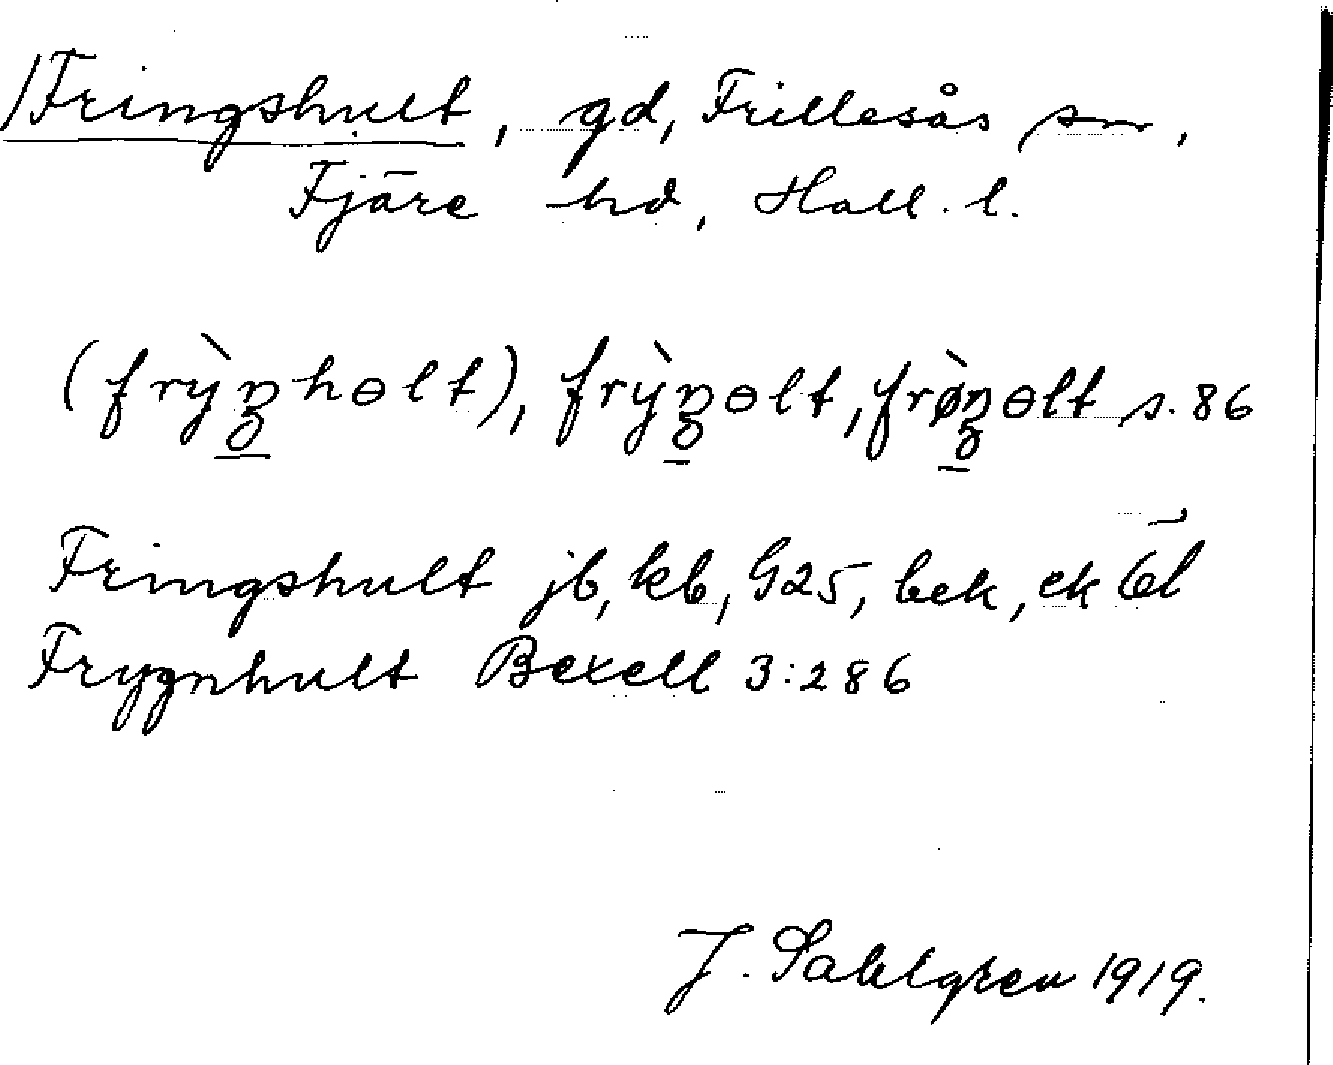 /Fringshult, gd, Frillesås sn,
Fjäre hd, Hall. l.
(frỳŋhɵlt), frỳŋɵlt, frø̀ŋɵlt s. 86
Fringshult jb, kb, G25, bek, ek bl
Frygnhult Bexell 3:286
J. Sahlgren 1919.